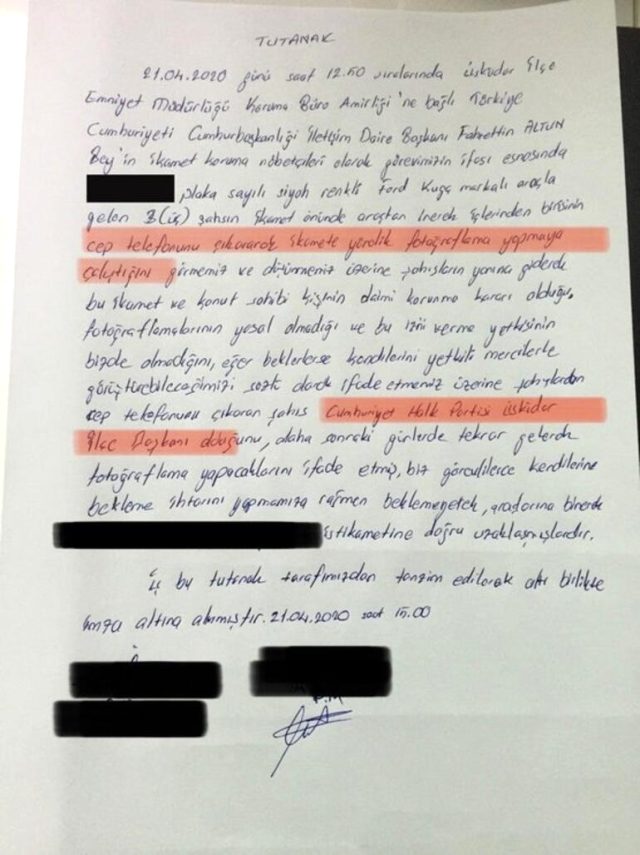 TUTANAK
21.04.2020 günü saat 12.50 sıralarında üsküdar İlçe
Emniyet Müdürlüğü Koruma Büro Amirliği'ne bağlı Türkiye
Cumhuriyeti Cumhurbaşkanlığı İletişim Daire Başkanı Fahrettin ALTUN
Bey'in ikamet koruma nöbetçileri olarak görevimizin ifası esnasında
plaka sayılı siyah renkli Ford Kuga markalı araçla
gelen 3(üç) şahsın ikamet önünde araçtan inerek içlerinden birisinin
cep telefonunu çıkararak ikamete yönelik fotoğraflama yapmaya
çalıştığını görmemiz ve üzerine şahısların yanına giderek
bu ikamet ve konut sahibi kişinin daimi korunma kararı olduğu,
fotoğraflamalarının yasal olmadığı ve bu izni verme yetkisinin
bizde olmadığını, eğer beklerlerse kendilerini yetkili mercilerle
görüştürebileceğimizi sözlü olarak ifade etmemiz üzerine şahıslardan
cep telefonunu çıkaran şahıs Cumhuriyet Halk Partisi üsküdar
İlçe Başkanı olduğunu, daha sonraki günlerde tekrar gelerek
fotoğraflama yapacaklarını ifade etmiş, biz görevlilerce kendilerine
bekleme ihtarını yapmamıza rağmen beklemeyerek, araçlarına binerek
istikametine doğru uzaklaşmışlardır.
İş bu tutanak tarafımızdan tanzim edilerek altı birlikte
imza altına alınmıştır. 21.04.2020 saat 15.00
P.M